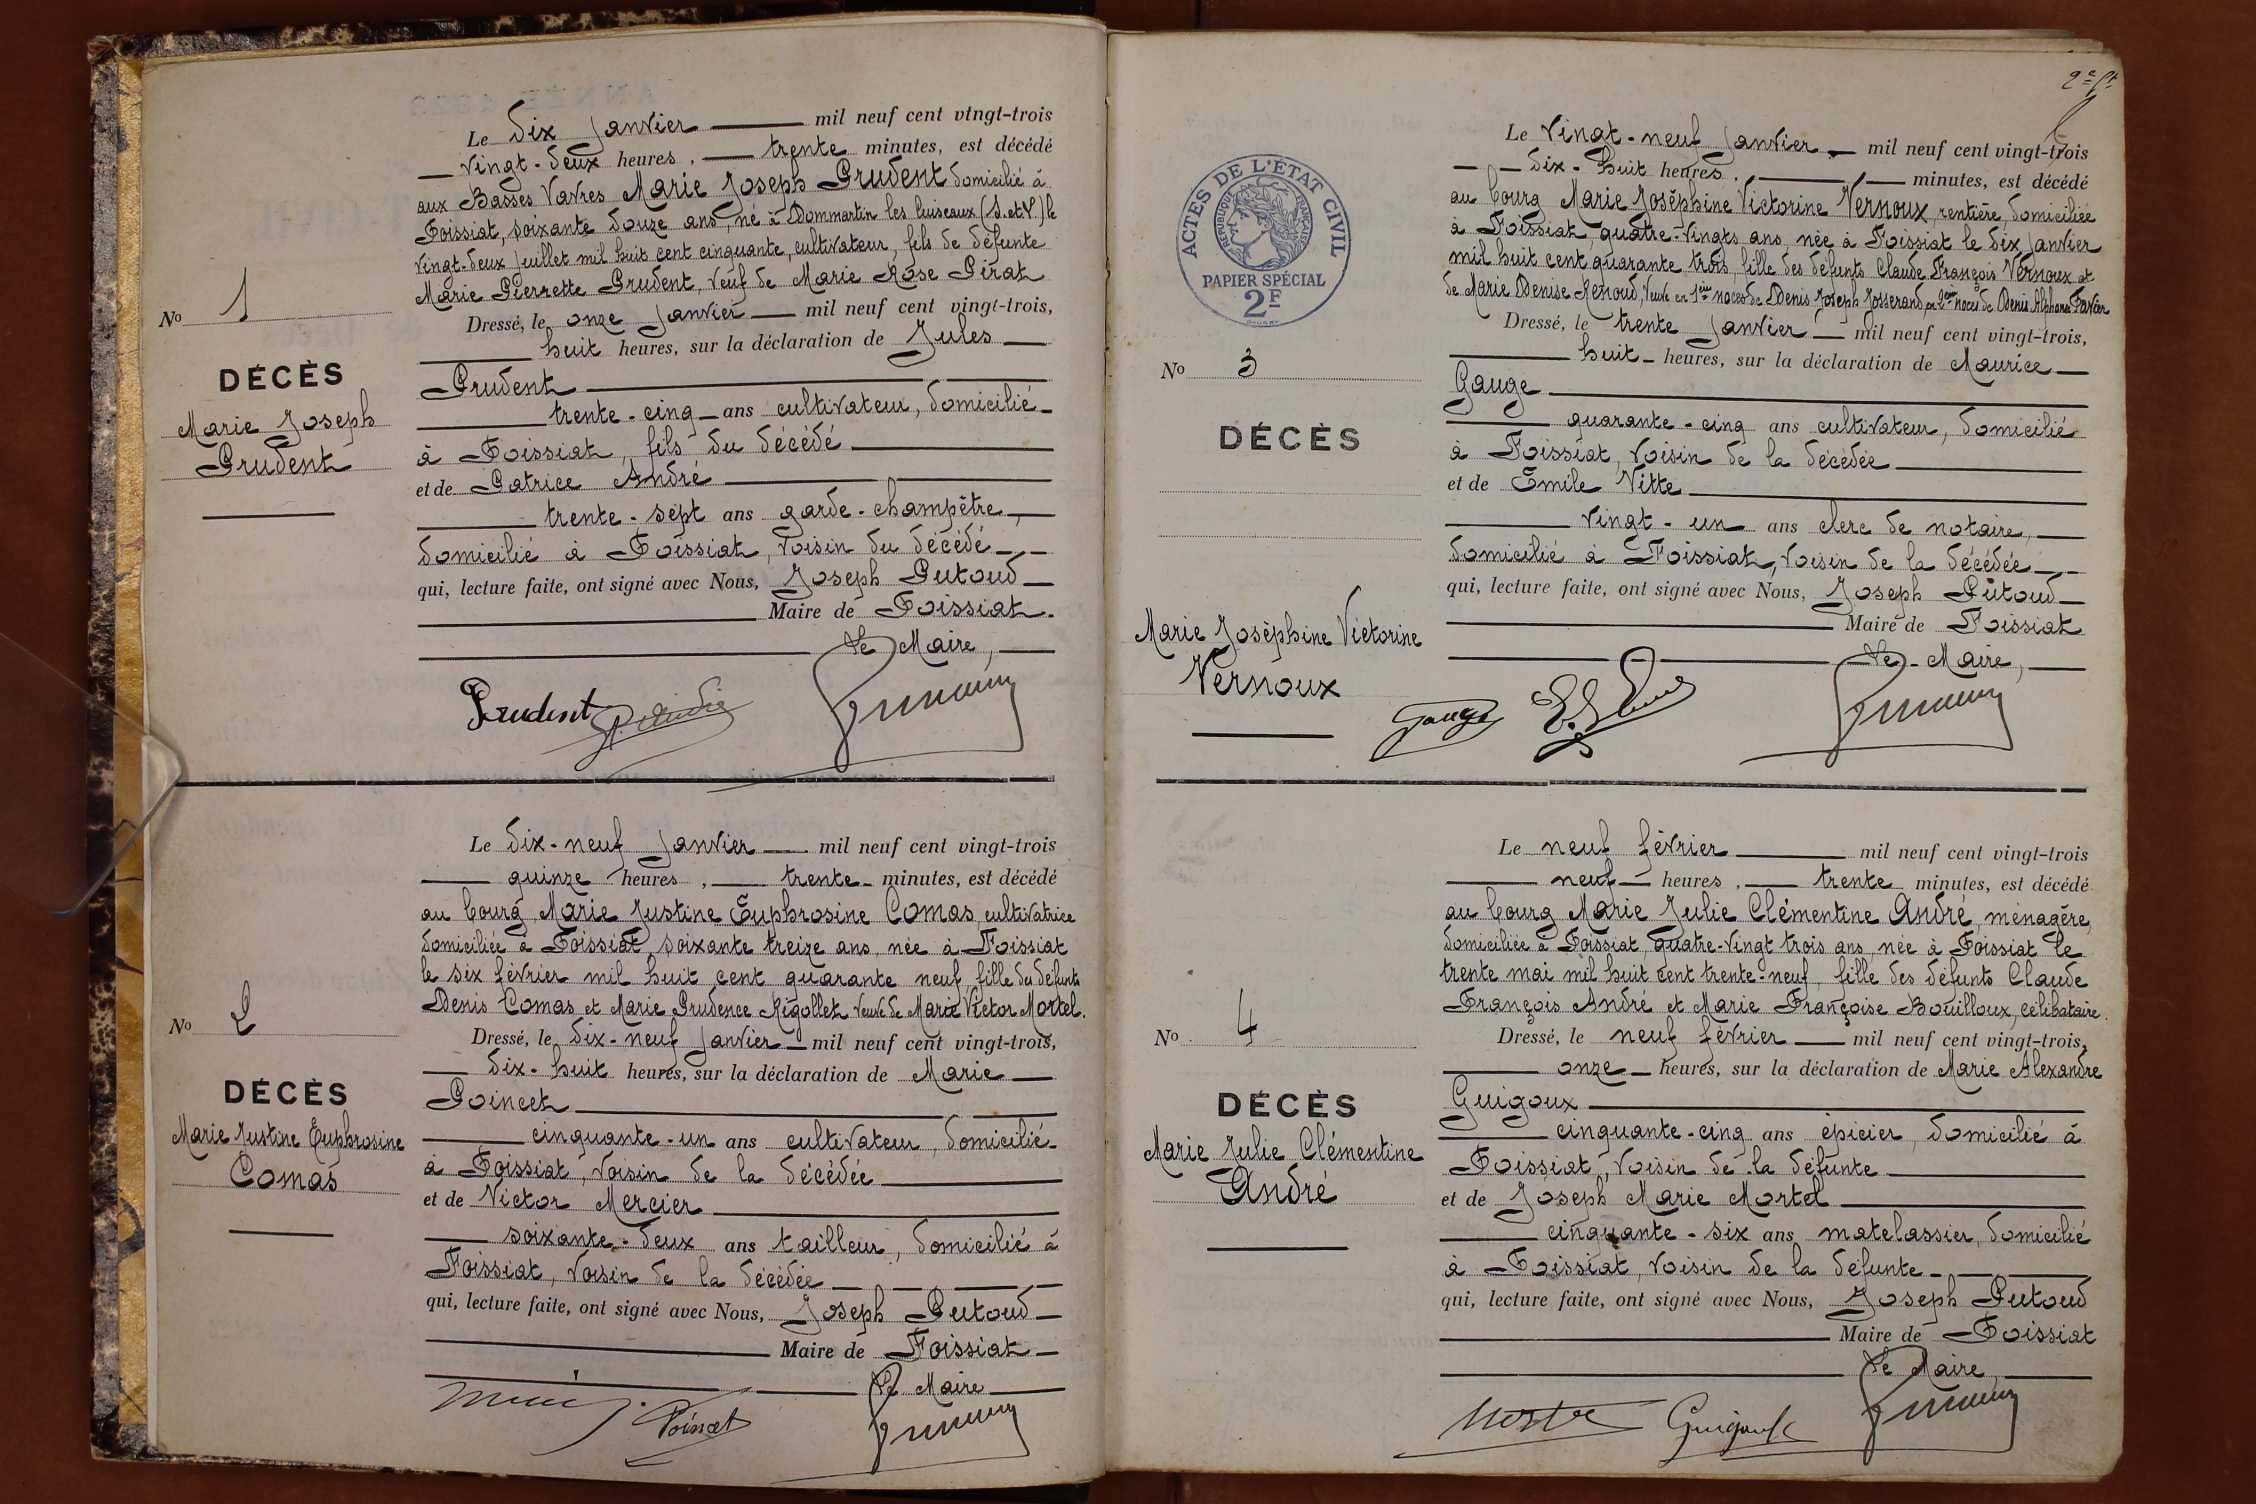 Le dix Janvier mil neuf cent vingt-trois
vingt-deux heures, trente minutes, est décédé
aux Basses Vavres Marie Joseph Prudent domicilié à
Foissiat, soixante douze ans, né à Dommartin les Cuiseaux (S.et.L.) le
vingt-deux Juillet mil huit cent cinquante, cultivateur, fils de défunte
Marie Pierrette Prudent, veuf de Marie Rose Pirat
Dressé, le onze Janvier mil neuf cent vingt-trois,
huit heures, sur la déclaration de Jules
Prudent
trente-cinq ans cultivateur, domicilié
à Foissiat, fils du décédé
et de Patrice André
trente-sept ans garde-champêtre,
domicilié à Foissiat, voisin du décédé
qui, lecture faite, ont signé avec Nous, Joseph Putoud
Maire de Foissiat.
Le Maire,
Prudent P. André
No 1
DÉCÈS
Marie Joseph
Prudent
Le dix-neuf Janvier mil neuf cent vingt-trois
quinze heures, trente minutes, est décédé
au bourg, Marie Justine Euphrosine Comas, cultivatrice
domiciliée à Foissiat, soixante treize ans, née à Foissiat
le six février mil huit cent quarante neuf, fille du défunts
Denis Comas et Marie Prudence Rigollet veuve de Marie Victor Mortel.
Dressé, le dix-neuf Janvier mil neuf cent vingt-trois,
dix-huit heures, sur la déclaration de Marie
Poincet
cinquante-un ans cultivateur, domicilié
à Foissiat, voisin de la décédée
et de Victor Mercier
soixante-deux ans tailleur, domicilié à
Foissiat, voisin de la décédée
qui, lecture faite, ont signé avec Nous, Joseph Putoud
Maire de Foissiat
Le Maire
Poincet
No 2
DÉCÈS
Marie Justine Euphrosine
Comas
2e ft
ACTES DE L'ÉTAT CIVIL
RÉPUBLIQUE FRANÇAISE
PAPIER SPÉCIAL
2F
Le vingt-neuf Janvier mil neuf cent vingt-trois
dix-huit heures, minutes, est décédé
au bourg Marie Joséphine Victorine Vernoux, rentière, domiciliée
à Foissiat, quatre-vingts ans, née à Foissiat le dix Janvier
mil huit cent quarante trois, fille des défunts Claude François Vernoux et
de Marie Denise Renoud, Veuve en 1ères noces de Denis Joseph Josserand en 2èmes noces de Denis Alphonse Favier
Dressé, le trente Janvier mil neuf cent vingt-trois,
huit heures, sur la déclaration de Maurice
Gauge
quarante-cinq ans cultivateur, domicilié
à Foissiat, voisin de la décédée
et de Emile Vitte
vingt-un ans clerc de notaire,
domicilié à Foissiat, voisin de la décédée
qui, lecture faite, ont signé avec Nous, Joseph Putoud
Maire de Foissiat
Le Maire,
Gauge
No 3
DÉCÈS
Marie Joséphine Victorine
Vernoux
Le neuf février mil neuf cent vingt-trois
neuf heures, trente minutes, est décédé
au bourg Marie Julie Clémentine André, ménagère,
domiciliée à Foissiat, quatre-vingt trois ans, née à Foissiat le
trente mai mil huit cent trente-neuf, fille des défunts Claude
François André et Marie Françoise Bouilloux, célibataire.
Dressé, le neuf février mil neuf cent vingt-trois,
onze heures, sur la déclaration de Marie Alexandre
Guigoux
cinquante-cinq ans épicier, domicilié à
Foissiat, voisin de la défunte
et de Joseph Marie Mortel
cinquante-six ans matelassier, domicilié
à Foissiat, voisin de la défunte
qui, lecture faite, ont signé avec Nous, Joseph Putoud
Maire de Foissiat
Le Maire,
Mortel Guigoux
No 4
DÉCÈS
Marie Julie Clémentine
André